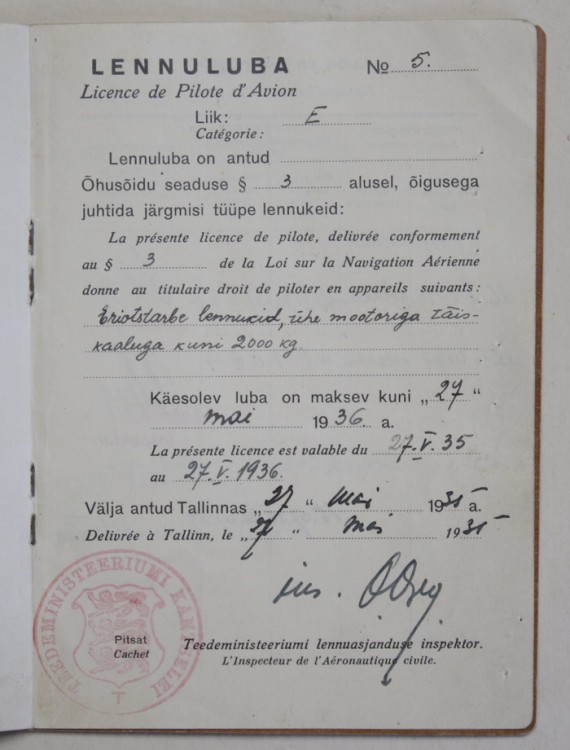 LENNULUBA № 5.
Licence de Pilote d'Avion
Liik: E
Catégorie:
Lennuluba on antud
Õhusõidu seaduse § 3 alusel, õigusega
juhtida järgmisi tüüpe lennukeid:
La présente licence de pilote, delivrée conformement
au § 3 de la Loi sur la Navigation Aérienne
donne au titulaire droit de piloter en appareils suivants:
Eriotstarbe lennukid, ühe mootoriga täis-
kaaluga kuni 2000 kg.
Käesolev luba on maksev kuni „27“
mai 1936. a.
La présente licence est valable du 27.V.35
au 27.V.1936.
Välja antud Tallinnas „27“ mai 1935 a.
Delivrée à Tallinn, le „27“ mai 1935
ins.
TEEDEMINISTEERIUMI KANTSELEI
T
Pitsat
Cachet
Teedeministeeriumi lennuasjanduse inspektor.
L'Inspecteur de l'Aéronautique civile.